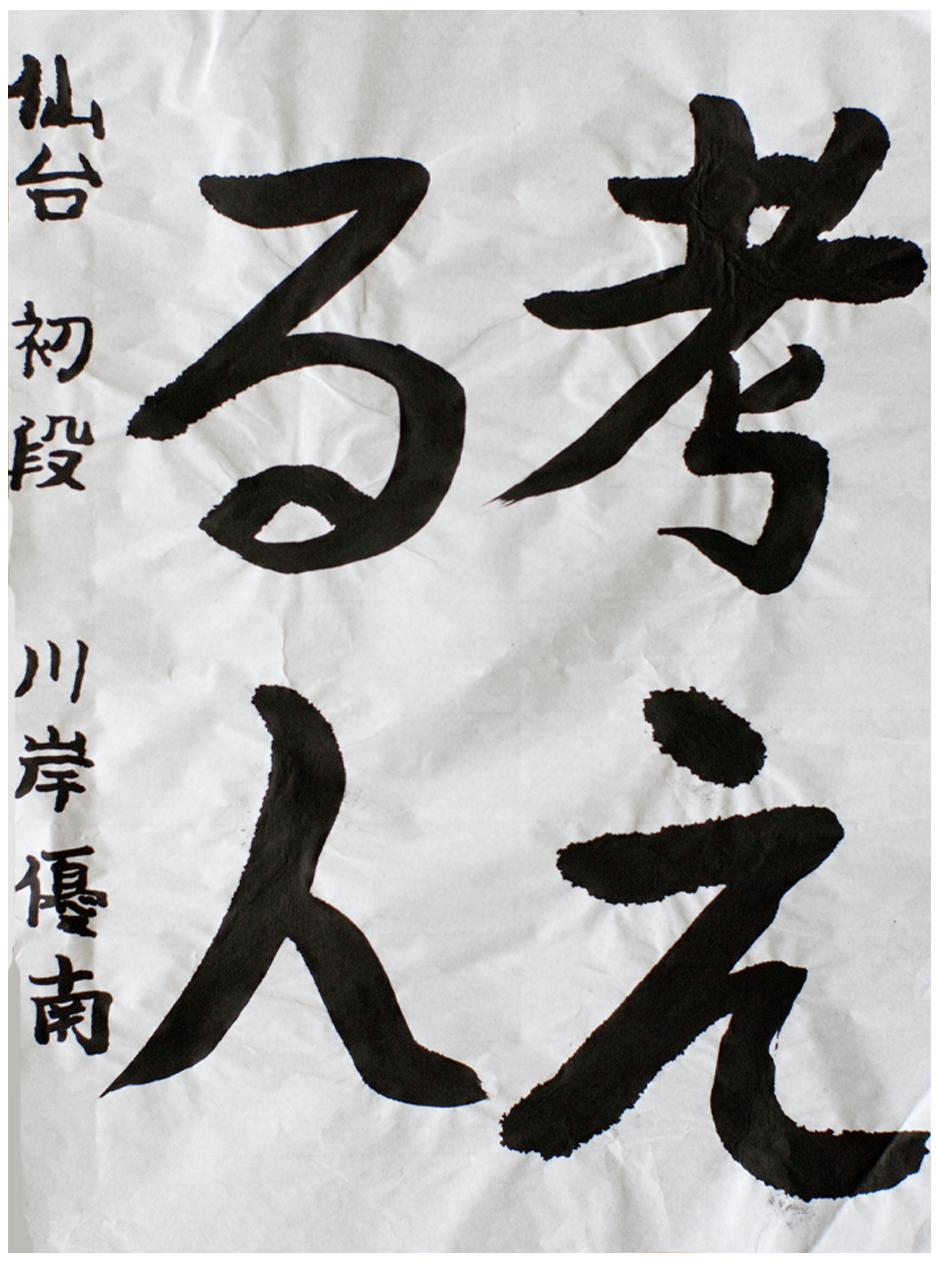 考え
る人
仙台 初段 川岸優南